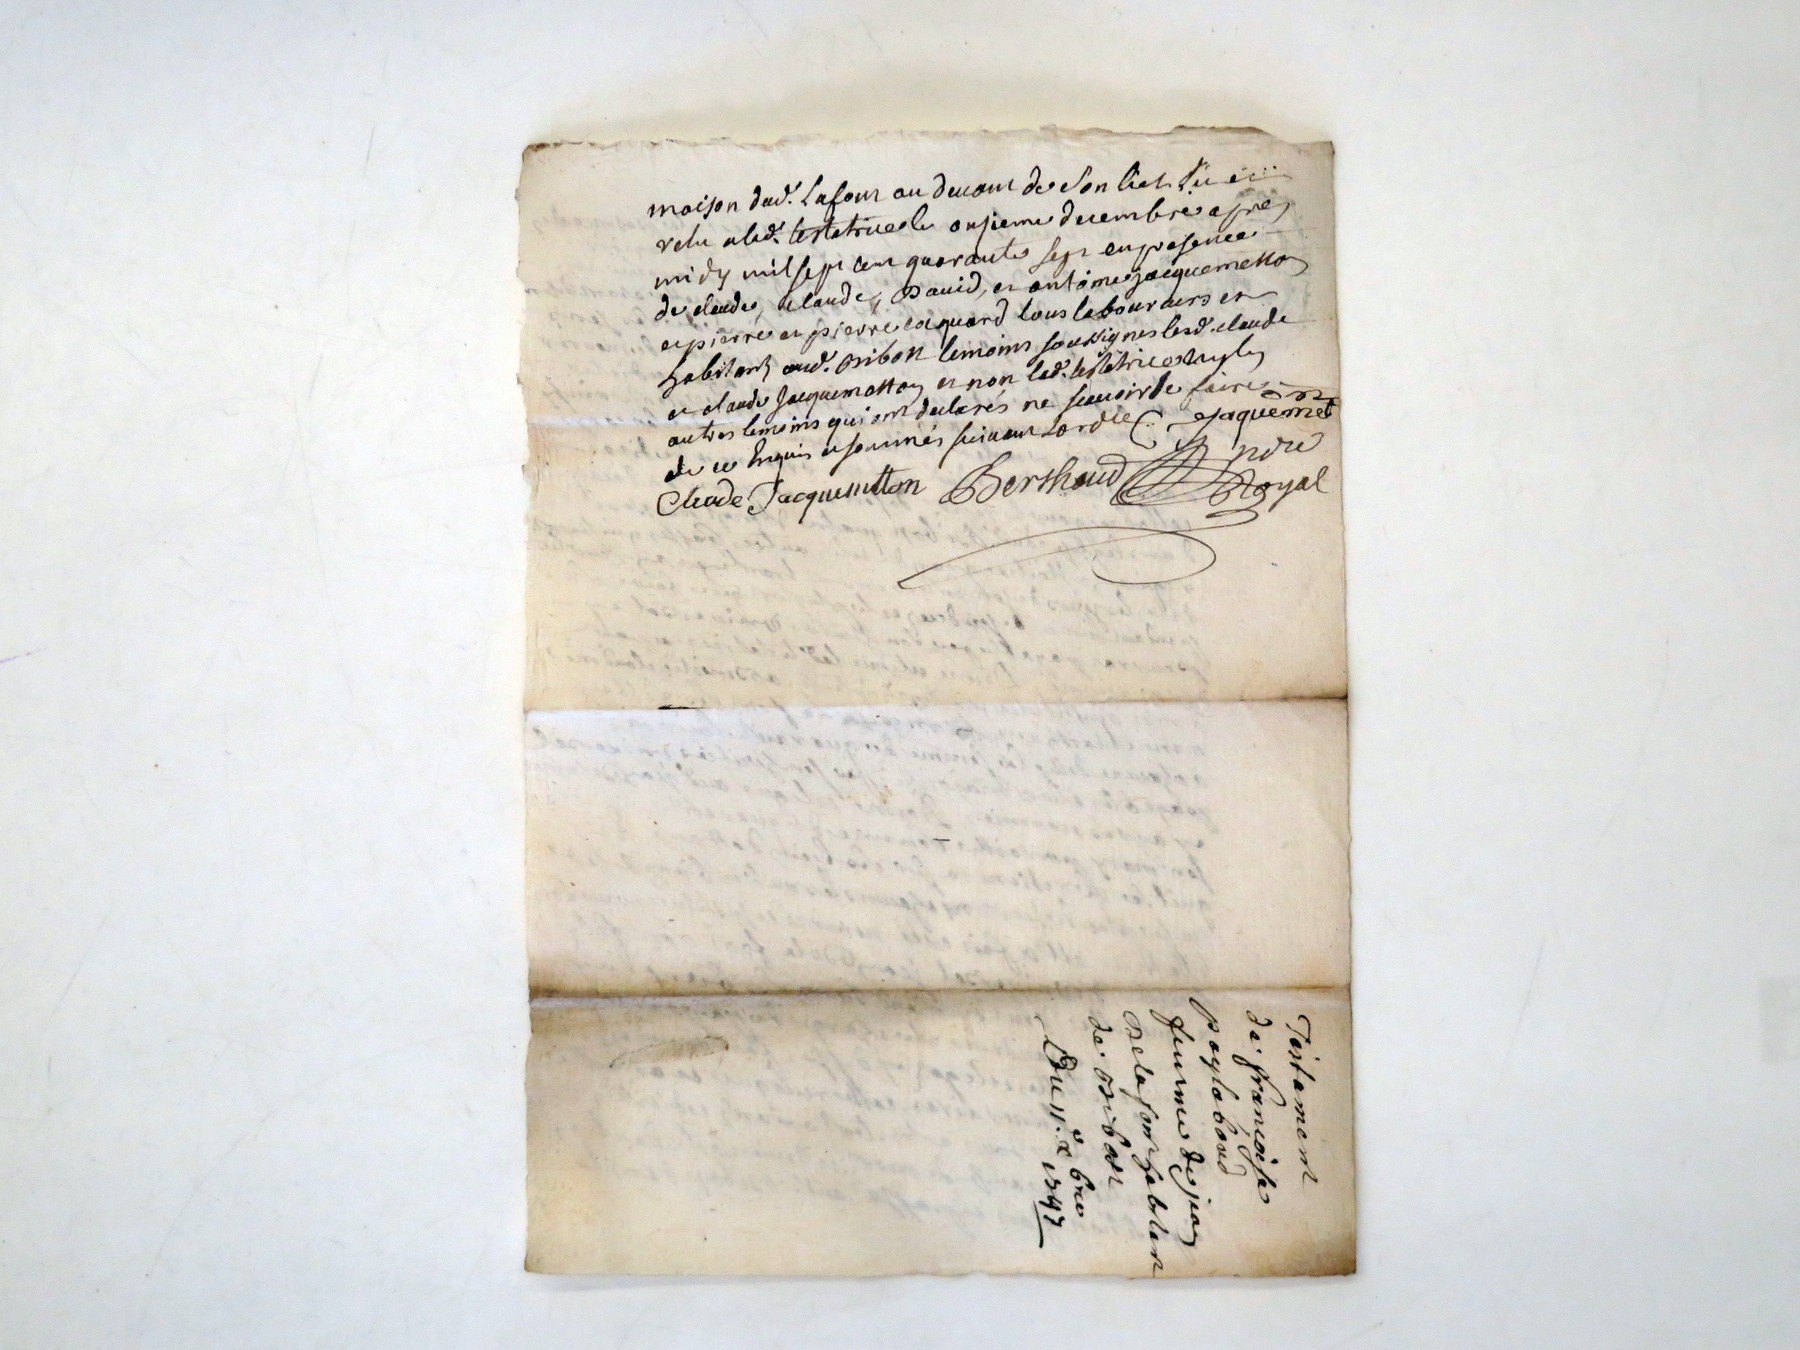 maison dud. Lafont au devant de son lict lu et
relu alad. testatrice le onsieme decembre apres
midy mil sept cent quarante sept en presence
de claude, claude, David, et antoine jacquemetton
et pierre et pierre coquard tous laboureurs et
habitants aud. temoins soussignes lesd. claude
et claude Jacquemetton et non lad. testatrice ny les
autres temoins qui ont declarés ne scavoir le faire
de ce Enquis et sommés suivant Lordce C. Jaquemet
Claude Jacquemetton Berthaud Nore
Royal
Testament
de francoise
poylaboud
femme de jean
Delafont habitant
de
Du 11. xbre
1747